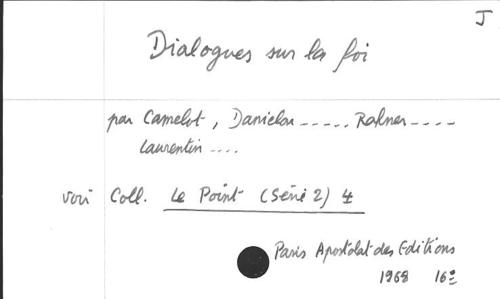 J
Dialogues sur la foi
par Camelot, Danielou ----- Rahner ----
Laurentin ....
voir Coll. Le Point (Série 2) 4
Paris Apostolat des Editions
1968 16º